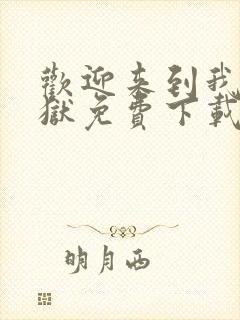 歡迎來到我
獄免費下載
明月西